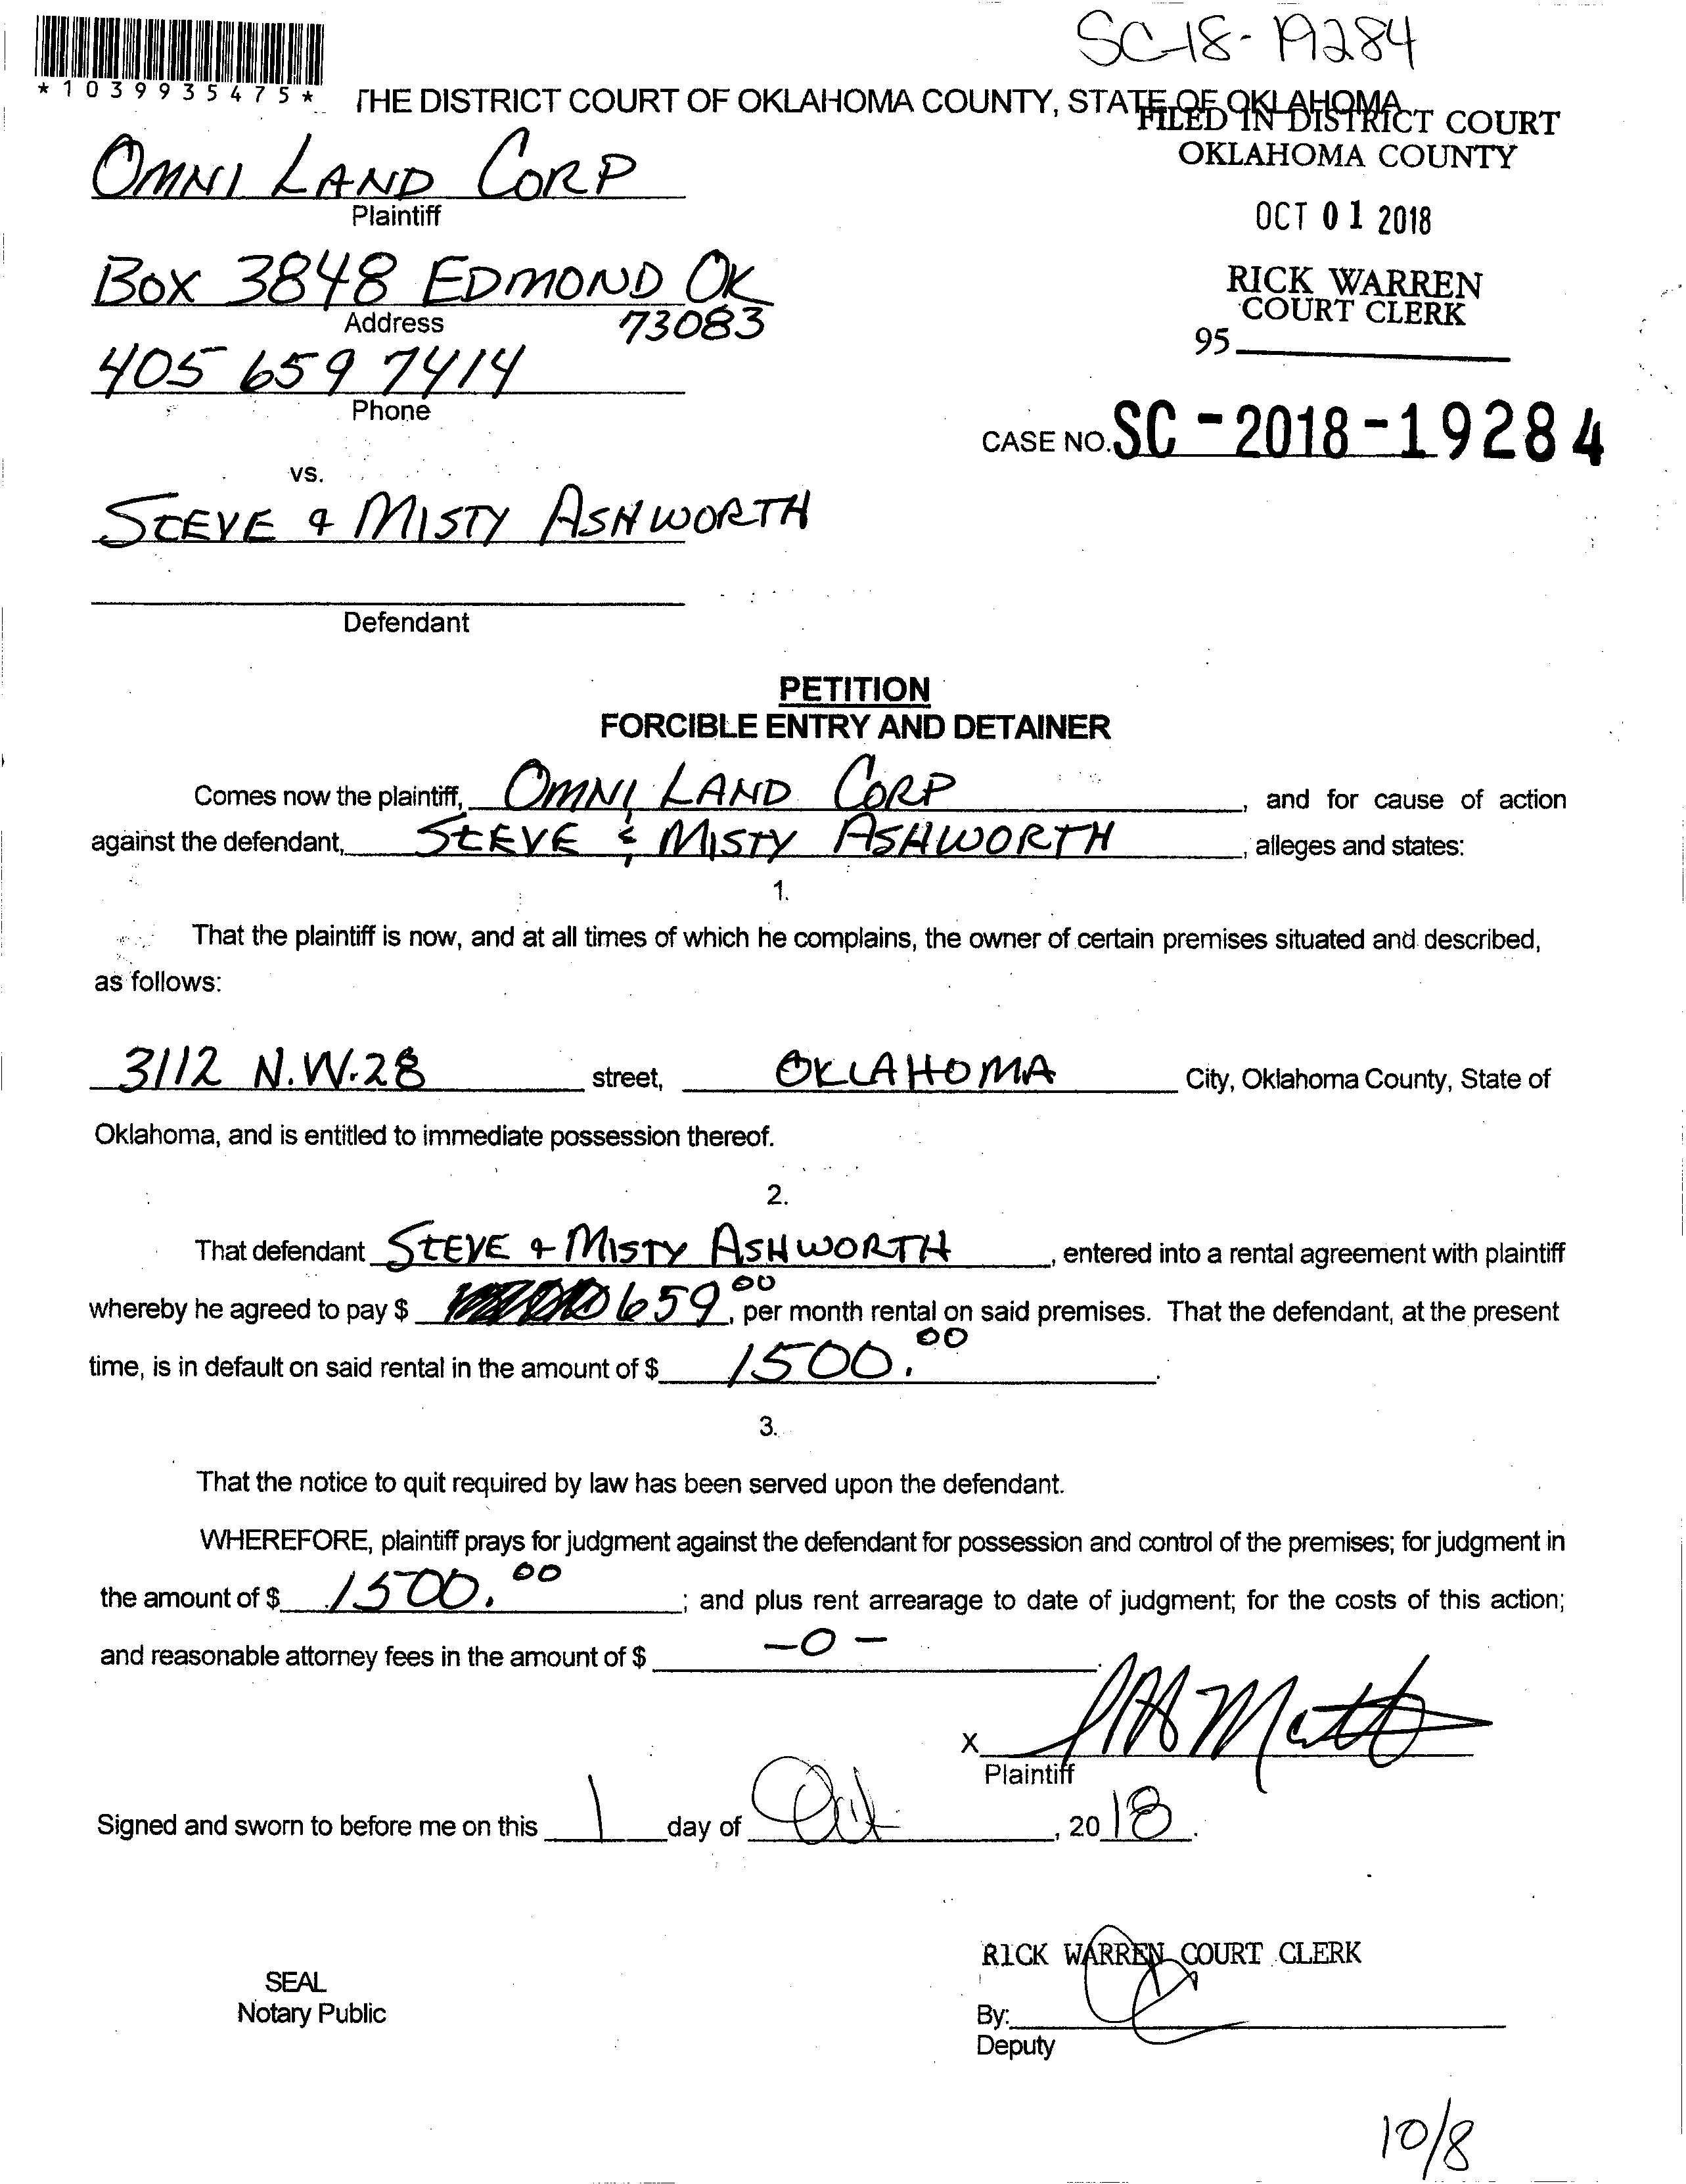 SC-18-19284
*1039935475*
THE DISTRICT COURT OF OKLAHOMA COUNTY, STATE OF OKLAHOMA
FILED IN DISTRICT COURT
OKLAHOMA COUNTY
OMNI LAND CORP
Plaintiff
OCT 01 2018
BOX 3848 EDMOND OK
73083
Address
RICK WARREN
COURT CLERK
95
405 659 7414
Phone
CASE NO. SC-2018-19284
vs.
STEVE & MISTY ASHWORTH
Defendant
PETITION
FORCIBLE ENTRY AND DETAINER
Comes now the plaintiff, OMNI LAND CORP, and for cause of action
against the defendant, STEVE & MISTY ASHWORTH, alleges and states:
1.
That the plaintiff is now, and at all times of which he complains, the owner of certain premises situated and described,
as follows:
3112 N.W. 28 street, OKLAHOMA City, Oklahoma County, State of
Oklahoma, and is entitled to immediate possession thereof.
2.
That defendant STEVE & MISTY ASHWORTH, entered into a rental agreement with plaintiff
whereby he agreed to pay $ 659 00, per month rental on said premises. That the defendant, at the present
time, is in default on said rental in the amount of $ 1500.00.
3.
That the notice to quit required by law has been served upon the defendant.
WHEREFORE, plaintiff prays for judgment against the defendant for possession and control of the premises; for judgment in
the amount of $ 1500.00; and plus rent arrearage to date of judgment; for the costs of this action;
and reasonable attorney fees in the amount of $ -0-.
X
Plaintiff
Signed and sworn to before me on this 1 day of Oct, 2018.
RICK WARREN COURT CLERK
SEAL
Notary Public
By:
Deputy
10/8